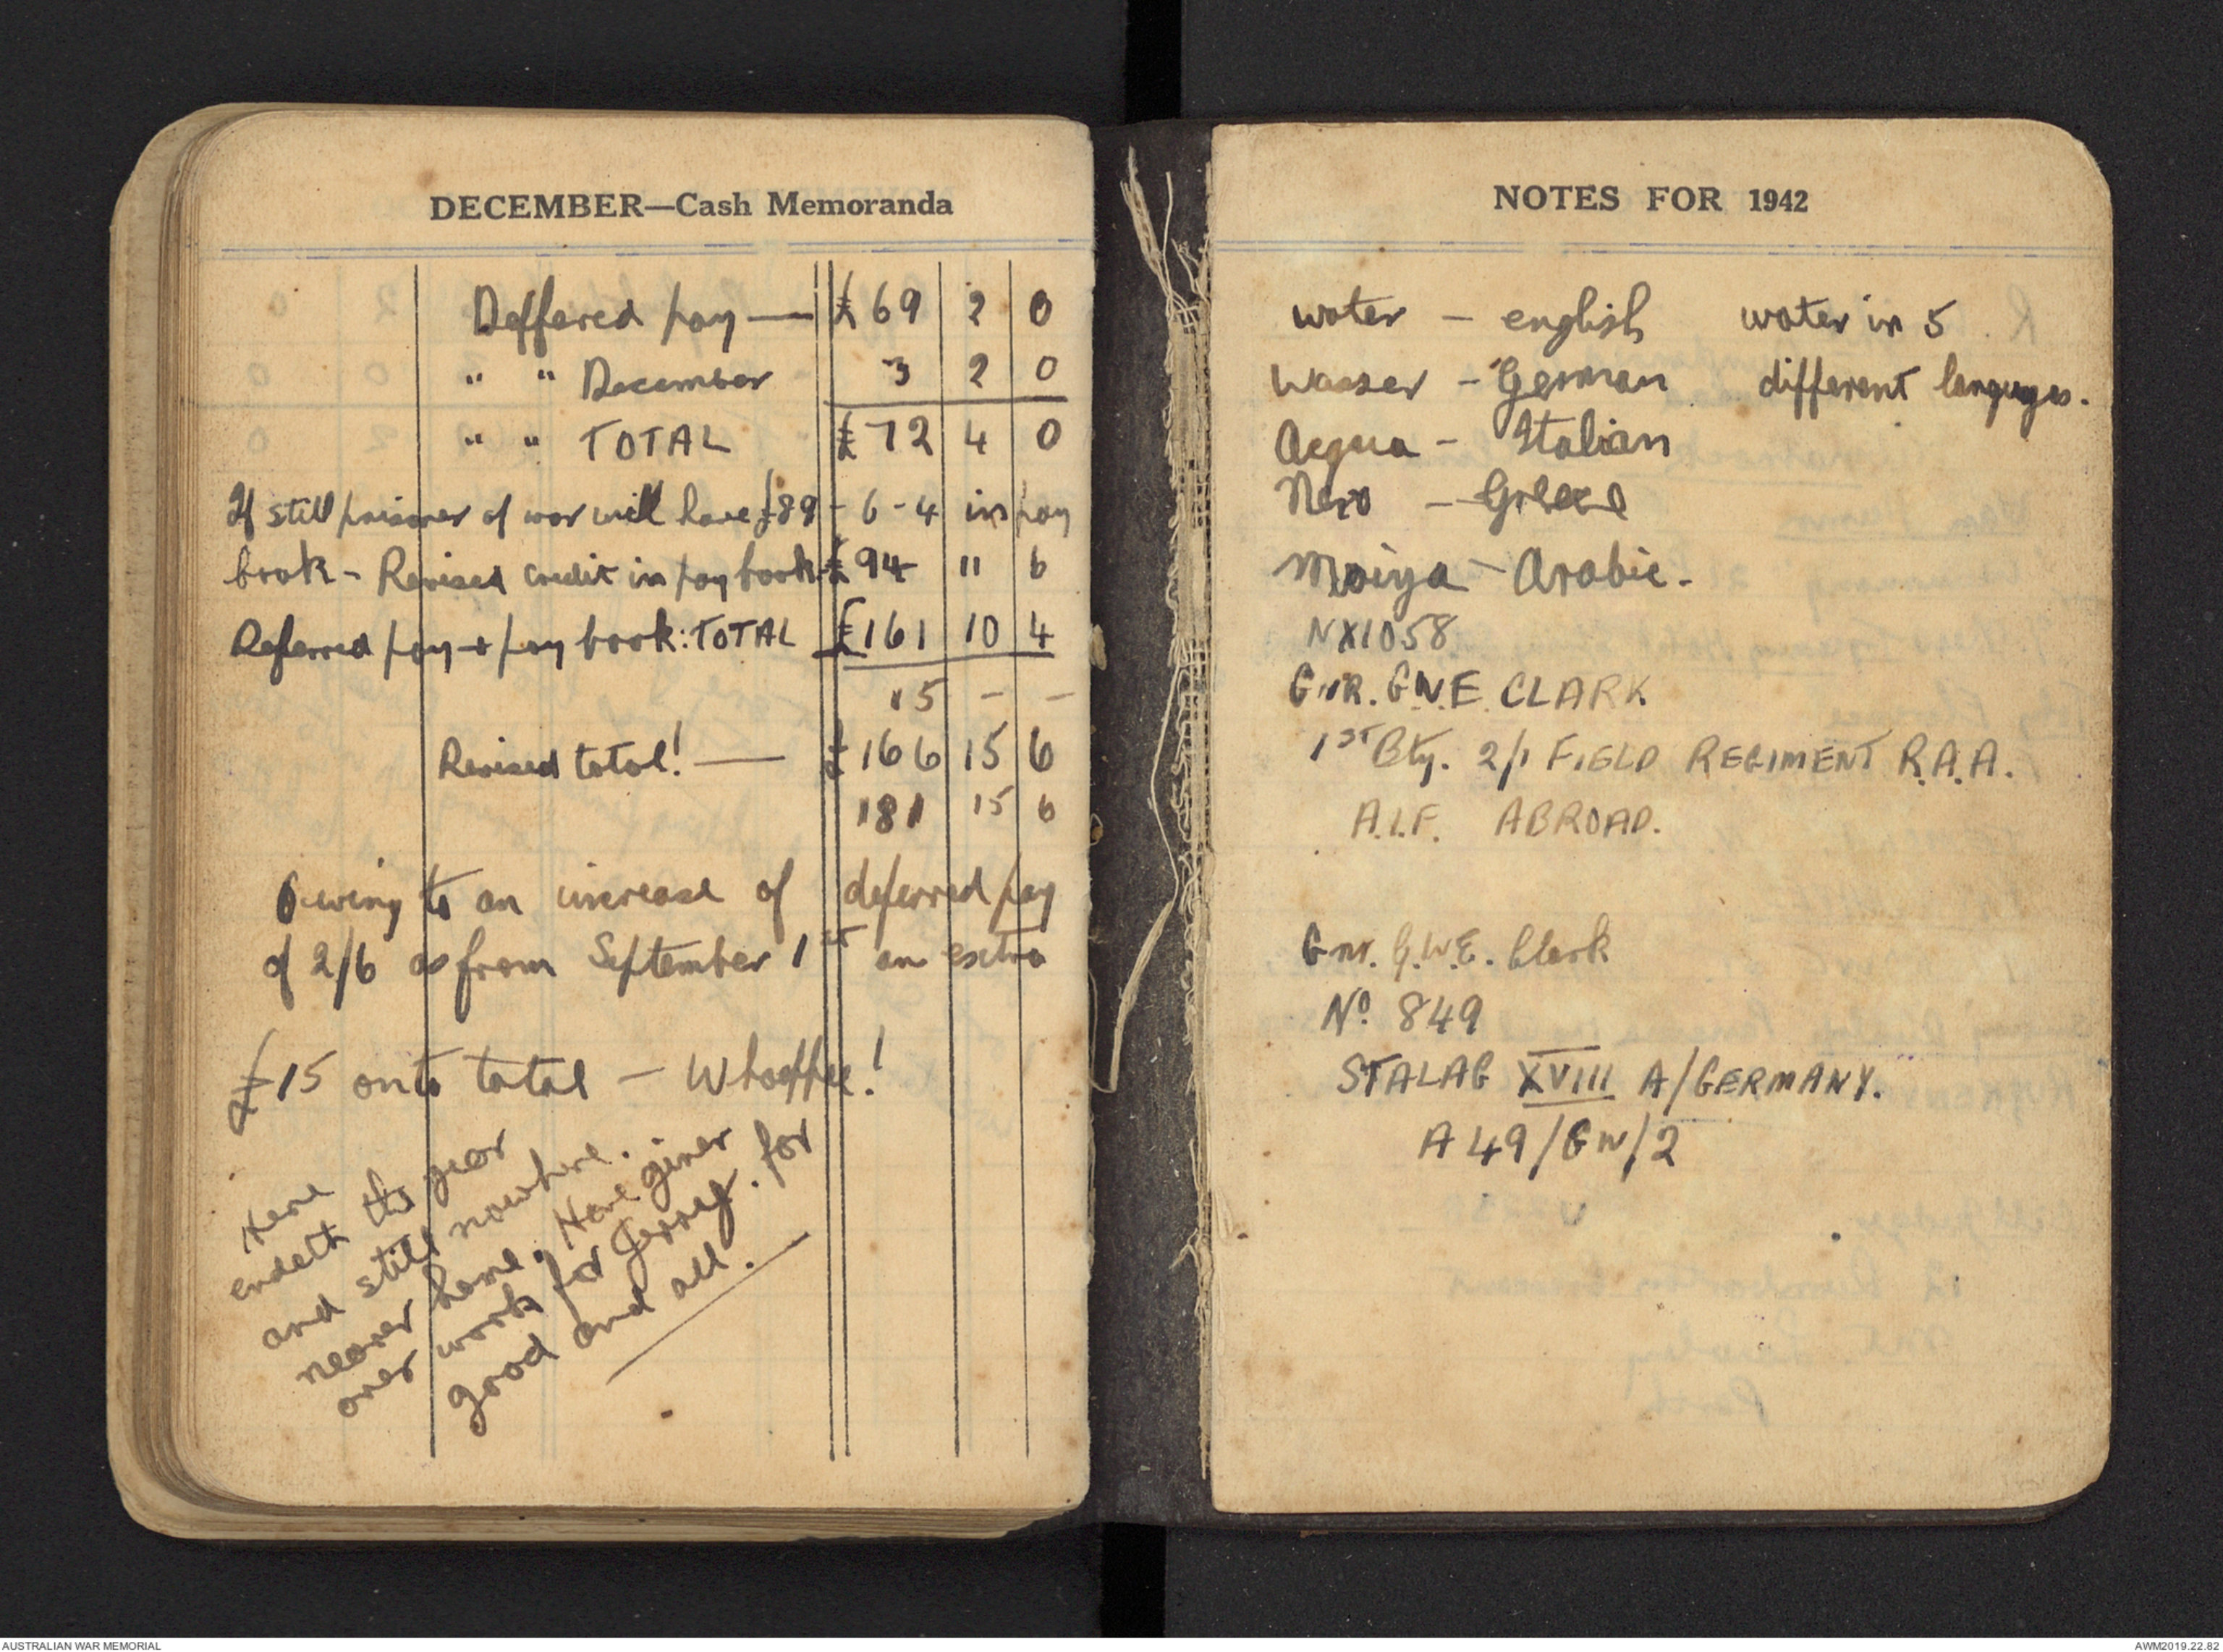 DECEMBER—Cash Memoranda
Deffered pay — £69 2 0
" " December 3 2 0
" " TOTAL £72 4 0
If still prisoner of war will have £89 - 6 - 4 in pay
book - Revised credit in pay book £94 11 6
Deferred pay + pay book: TOTAL £161 10 4
15 - -
Revised total! — £166 15 6
181 15 6
Owing to an increase of deferred pay
of 2/6 as from September 1st an extra
£15 onto total - Whoopee!
Here
endeth the year
and still nowhere
nearer home. Have given
over work for Jerrey. for
good and all.
NOTES FOR 1942
water - english water in 5
Wasser - German different languages.
Acqua - Italian
Nero - Greece
Moiya - Arabic.
NX1058
GNR. G.W.E. CLARK
1ST Bty. 2/1 FIELD REGIMENT R.A.A.
A.I.F. ABROAD.
Gnr. G.W.E. Clark
No. 849
STALAG XVIII A/GERMANY.
A 49/GW/2
AUSTRALIAN WAR MEMORIAL
AWM2019.22.82